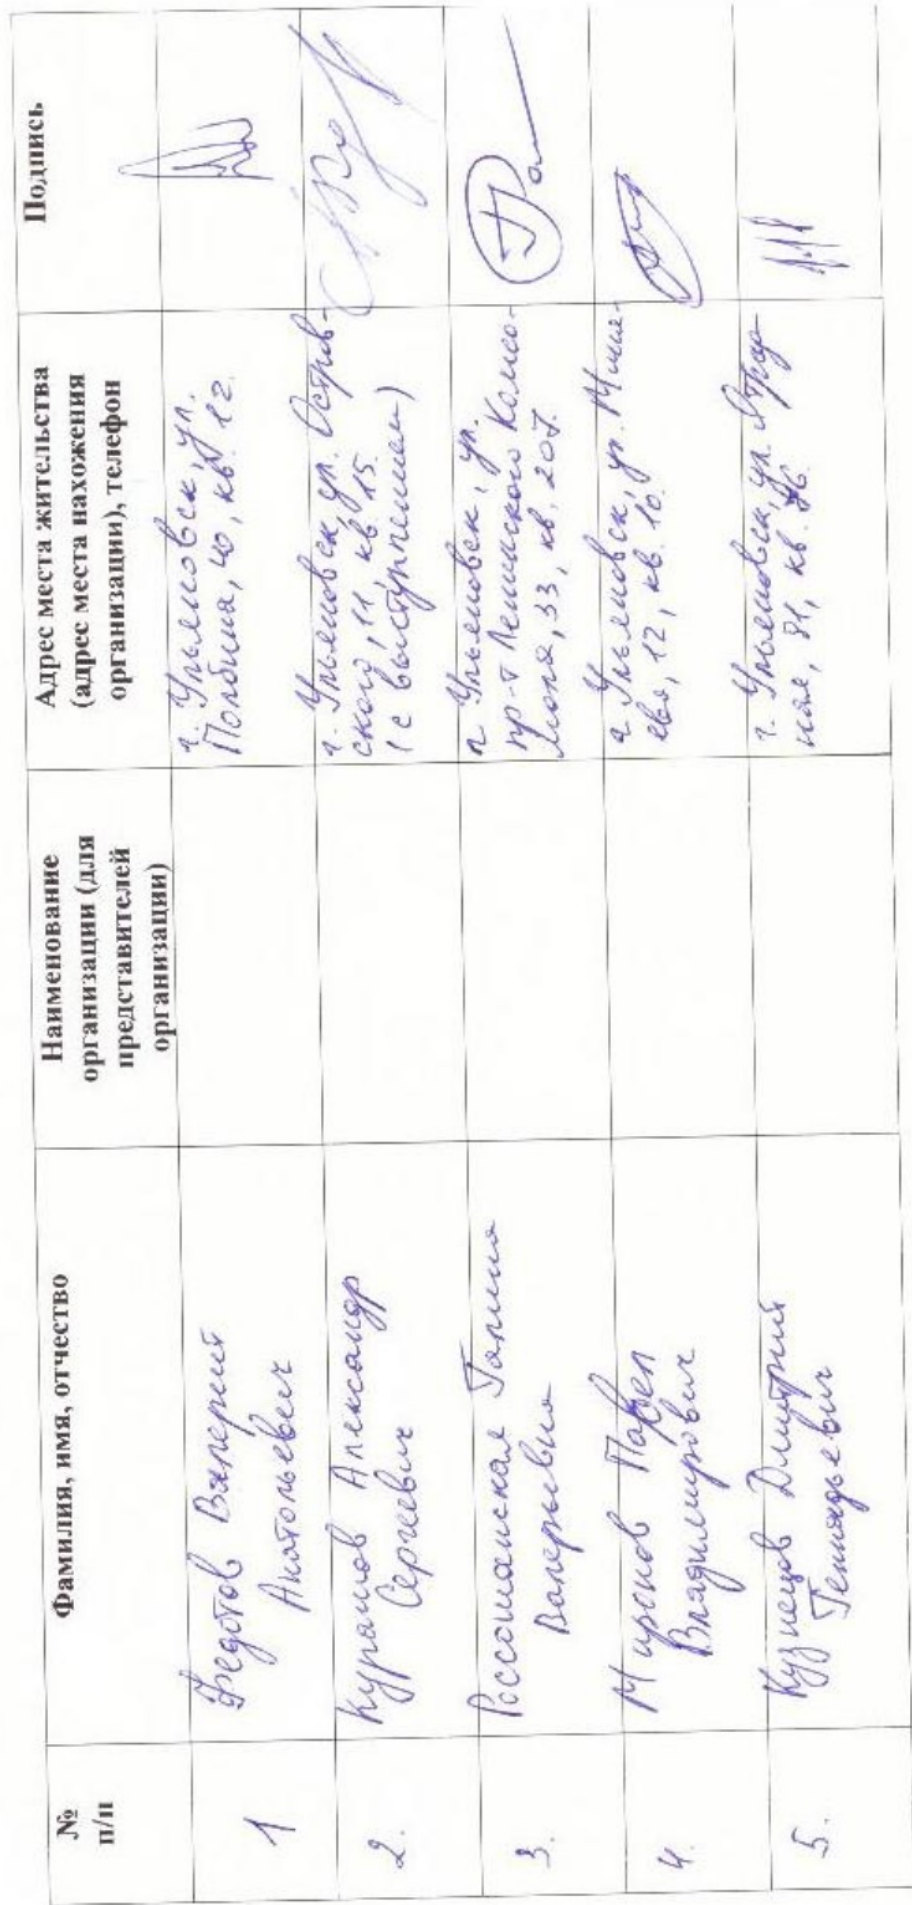 №
п/п
Фамилия, имя, отчество
Наименование
организации (для
представителей
организации)
Адрес места жительства
(адрес места нахожения
организации), телефон
Подпись
1
Федотов Валерий
Анатольевич
г. Ульяновск, ул.
Полбина, 40, кв. 12.
2.
Курамов Александр
Сергеевич
г. Ульяновск, ул. Остров-
ского, 11, кв 15.
(с выступлением)
3.
Россошанская Галина
Валерьевна
г. Ульяновск, ул.
пр-т Ленинского Комсо-
мола, 33, кв. 207.
4.
Миронов Павел
Владимирович
г. Ульяновск, ул.
12, кв. 10.
5.
Кузнецов Дмитрий
Геннадьевич
г. Ульяновск, ул.
81, кв.